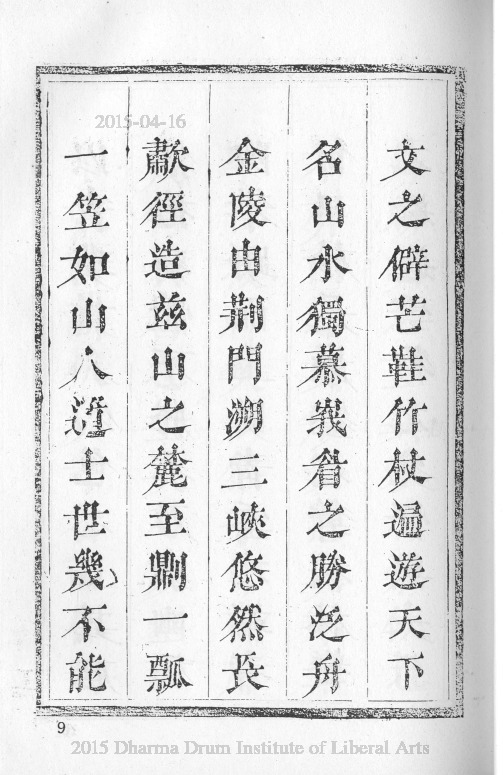 文之僻芒鞋竹杖遍遊天下
名山水獨慕峩眉之勝泛舟
金陵由荆門泝三峽悠然長
歗徑造茲山之麓至則一瓢
一笠如山人道士世幾不能
9
2015-04-16
2015 Dharma Drum Institute of Liberal Arts